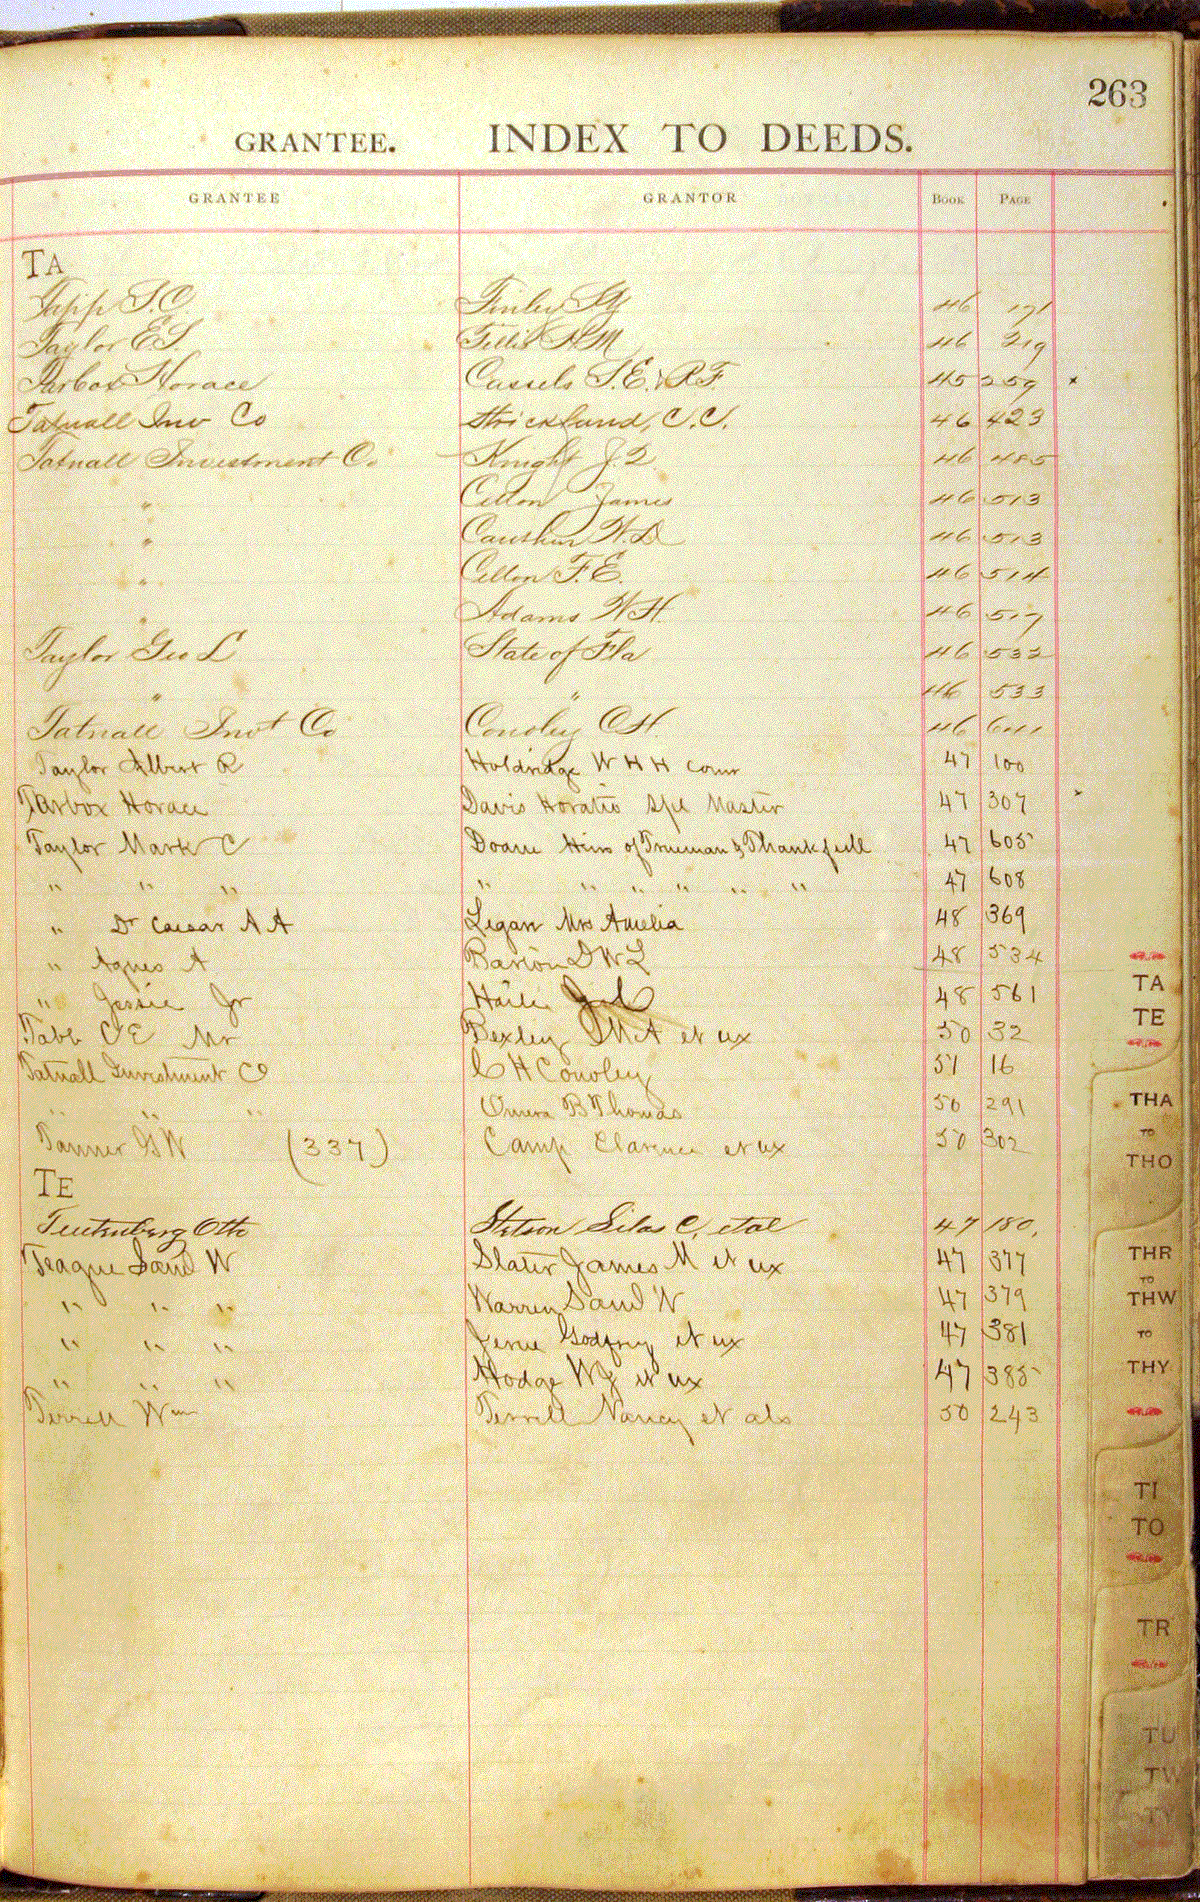 263
GRANTEE. INDEX TO DEEDS.
GRANTEE GRANTOR BOOK PAGE
TA
Tapp S.O. Finley 46 171
Taylor E.S. H M 46 219
Tarbox Horace Cassels S.E. & R F 45 259 x
Tatnall Inv Co Strickland, C.C. 46 423
Tatnall Investment Co. Knight J. 46 485
" James 46 513
" W D 46 513
" F. E. 46 514
" Adams W H. 46 517
Taylor Geo L State of Fla 46 532
" " 46 533
Tatnall Invt Co Conoley C H. 46
Taylor Albert R Holdridge W H H comr 47 100
Tarbox Horace Davis Horatio Spl Master 47 307
Taylor Mark C Doane Heirs of Trueman & Thankfull 47 605
" " " " " " " " " 47 608
" Dr Caesar A A Logan Mrs Amelia 48 369
" Agnes A Barton D W L 48 534
" Jessie Jr Haile 48 561
Tabb C E Mr Bexley M A et ux 50 32
Tatnall Investment Co C H Conoley 51 16
" " " B Thomas 50 291
Tanner G W (337) Camp Clarence et ux 50 302
TE
Teutenberg Otto Stetson Silas C, et al 47 180.
Teague Saml W Slater James M et ux 47 377
" " " Warren Saml W 47 379
" " " Godfrey et ux 47 381
" " " Hodge W J et ux 47 385
Terrell Wm Terrell Nancy et als 50 243
TA
TE
THA
TO
THO
THR
TO
THW
TO
THY
TI
TO
TR
TU
TW
TY